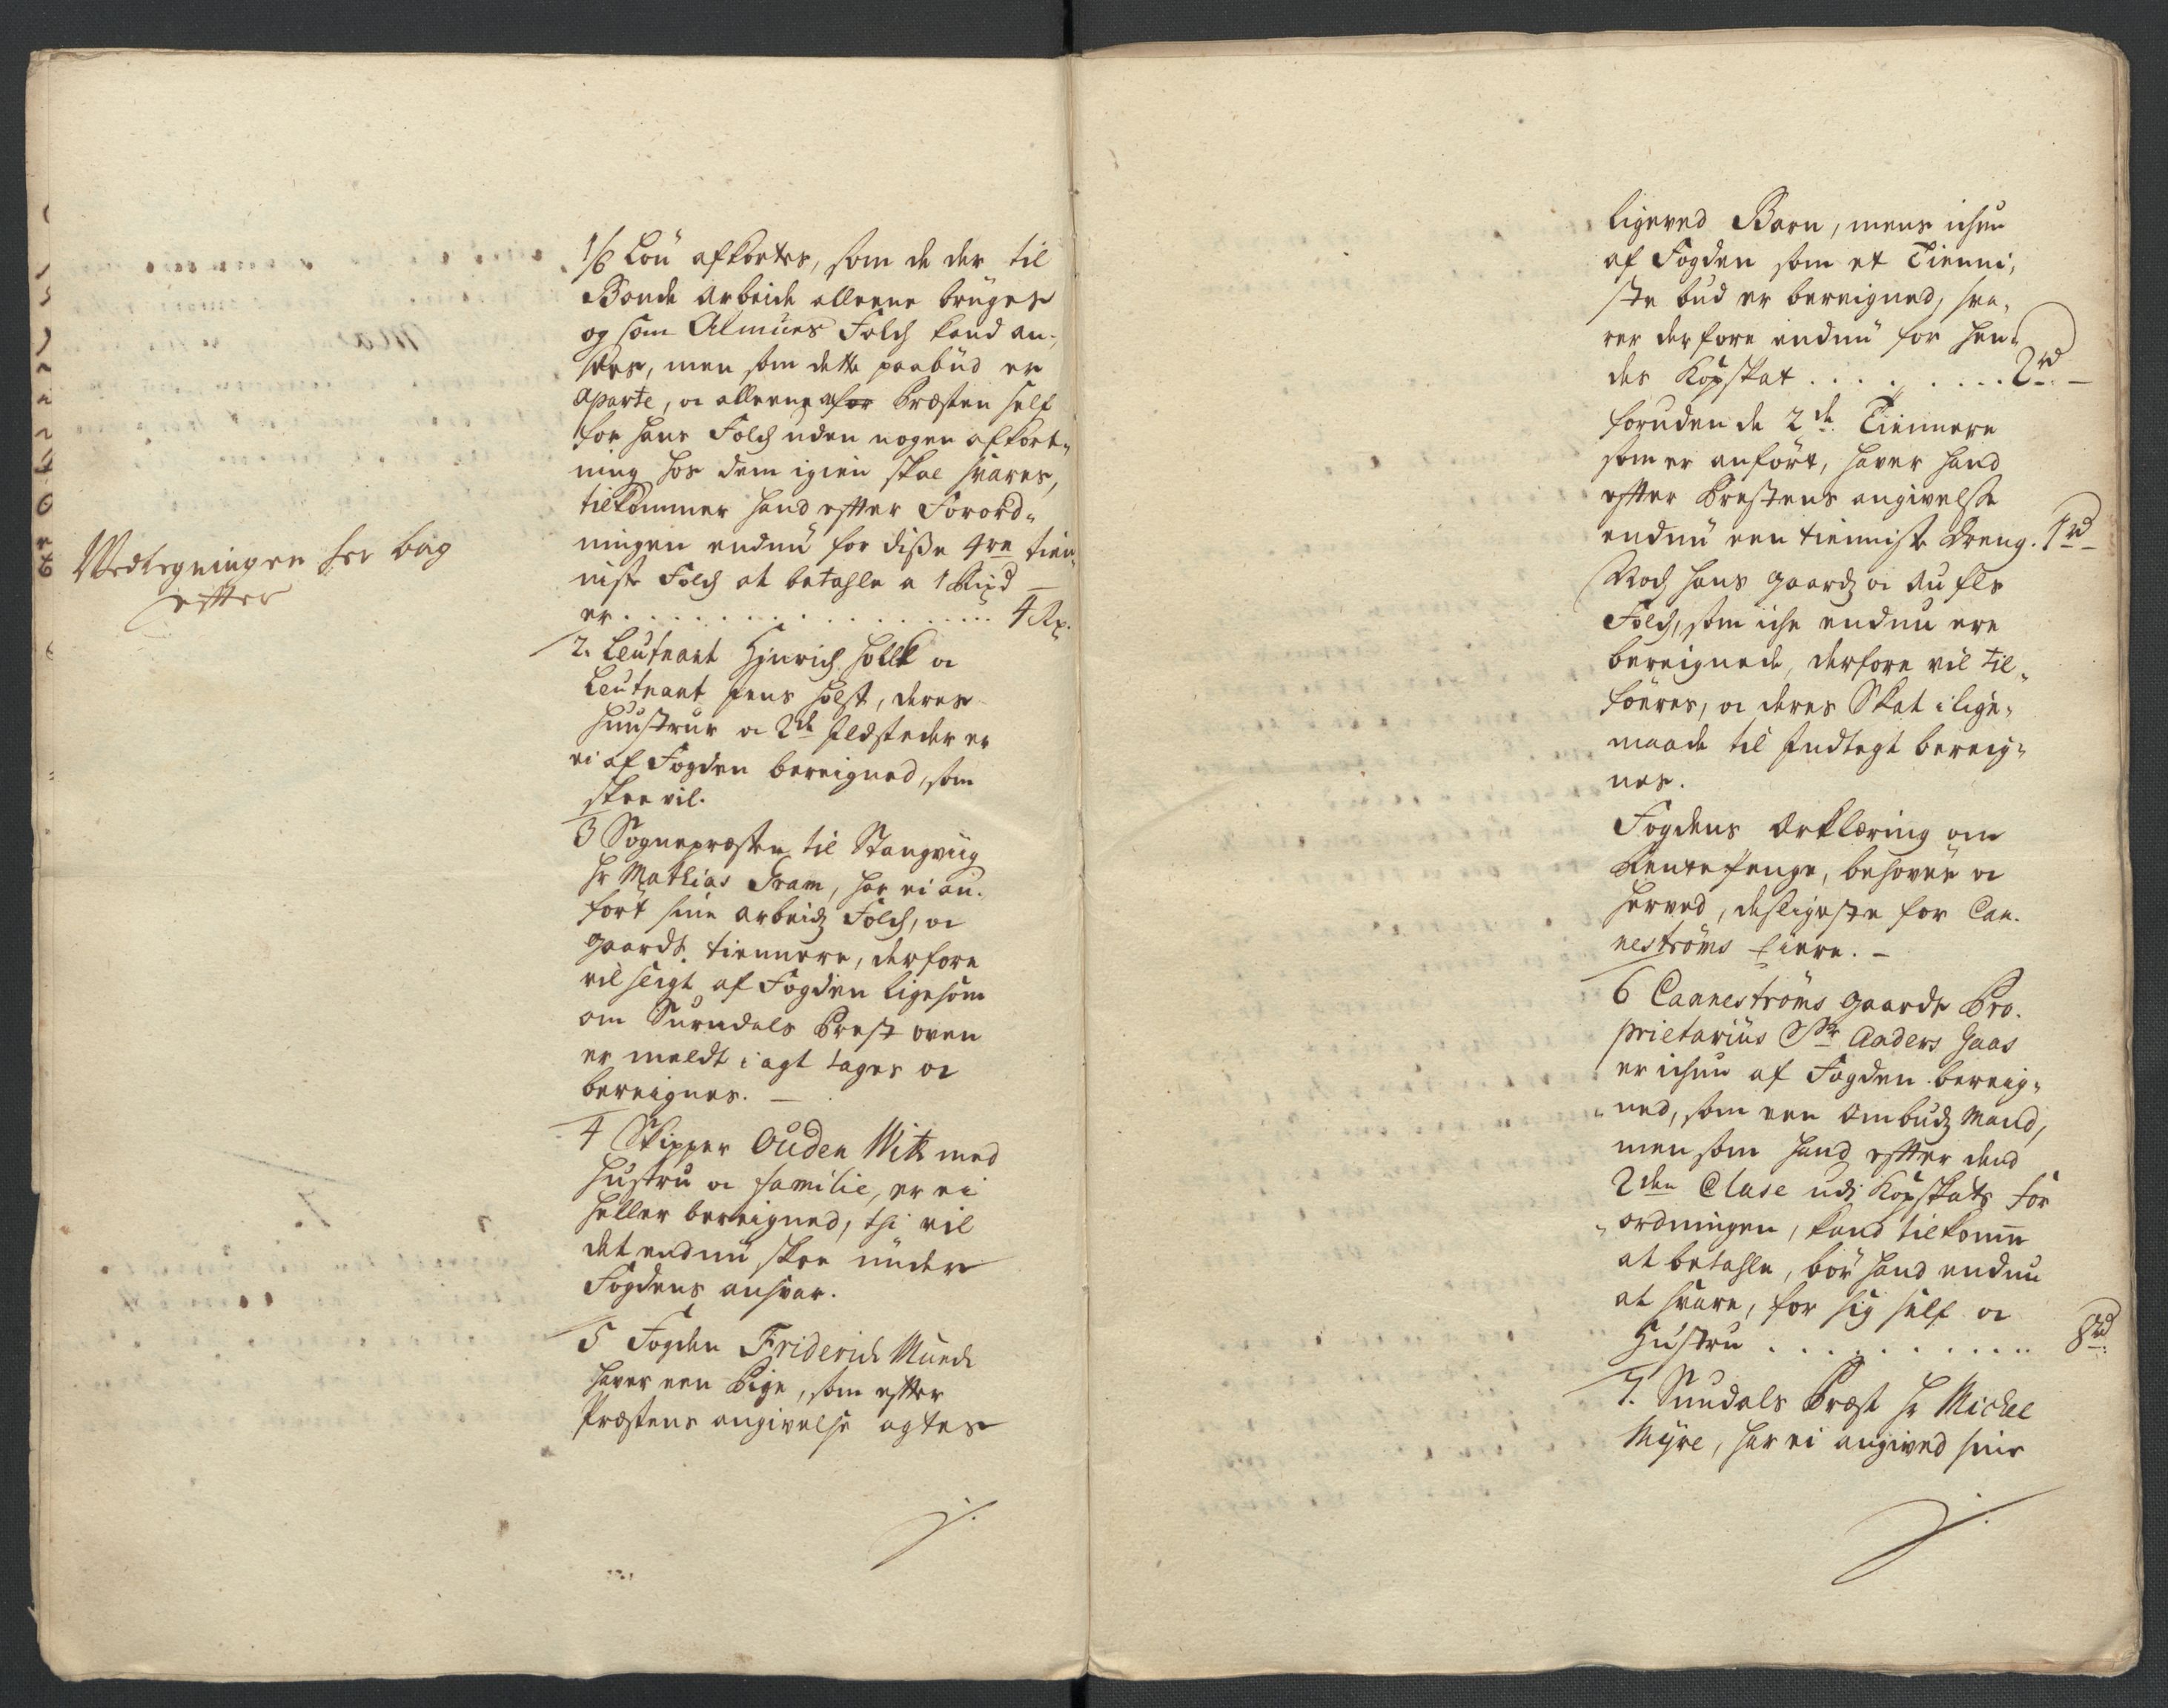 Vedtegningen her bag
efter
1/6 Lön afkortes, som de der til
Bonde arbeide alleene brüges
og som Almües Folch kand an-
sees, men som dette paabüd er
aparte, oc alleene af Præsten self
for hans Folch uden nogen afkort-
ning hos dem igien skal svares,
tilkommer hand efter Forord-
ningen endnü for disse 4re tien-
niste Folch at betahle a 1 Rixd
er . . . . . . . . . . 4 Rx.
2. Leutnant Hinrich Holck oc
Leutnant Jens Holst, deres
Huustruer oc 2de Ildsteder er
ei af Fogden bereigned, som
skee vil.
3 Sognepræsten til Stangviig
Hr Mathias Gram, har ei an-
fört sine arbeidz Folch, oc
gaardz tiennere, derfore
vil sligt af Fogden ligesom
om Surndals Præst oven
er meldt i agt tages oc
bereignes. —
4 Skipper Ouden Witt med
Hustru oc familie, er ei
heller bereigned, thi vil
det endnü skee ünder
Fogdens ansvar.
5 Fogden Friderich Munch
haver een Pige, som efter
Præstens angivelse agtes
ligeved Barn, mens ichun
af Fogden som et Tienni-
ste bud er bereigned, sva-
rer derfore endnü for hen-
des Kopskat . . . . . . . . 2 rd —
foruden de 2de Tiennere
som er anfört, haver hand
efter Prestens angivelse
endnü een tienniste Dreng. 1 rd
Noch hans gaardz oc aufls
Folch, som iche endnu ere
bereignede, derfore vil til-
föeres, oc deres Skat i lige-
maade til Indtegt bereig-
nes.
Fogdens Ærklæring om
Rentepenge, behöves oc
herved, desligeste for Can-
neströms Eiere. —
6 Canneströms gaards Pro-
prietariüs Sr Anders Haas
er ichun af Fogden bereig-
ned, som een ombudz Mand,
men som hand efter dend
2den Clase udi Kopskats For
ordningen, kand tilkomme
at betahle, bör hand endnu
at svare, for sig self oc
Hustru . . . . . . . . . . 8 rd
7. Sundals Præst Hr Michel
Myre, har ei angived sine